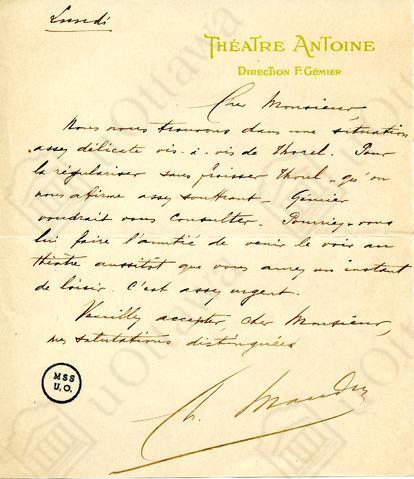 Lundi
THÉATRE ANTOINE
DIRECTION F. GÉMIER
Cher Monsieur,
Nous nous trouvons dans une situation
assez délicate vis-à-vis de Thorel. Pour
la régulariser sans froisser Thorel - qu'on
nous affirme assez souffrant - Gémier
voudrait vous consulter. Pourriez-vous
lui faire l'amitié de venir le voir au
théâtre aussitôt que vous aurez un instant
de loisir. C'est assez urgent.
Veuillez accepter, cher Monsieur,
mes salutations distinguées
Ch.
MSS
U.O.
u Ottawa